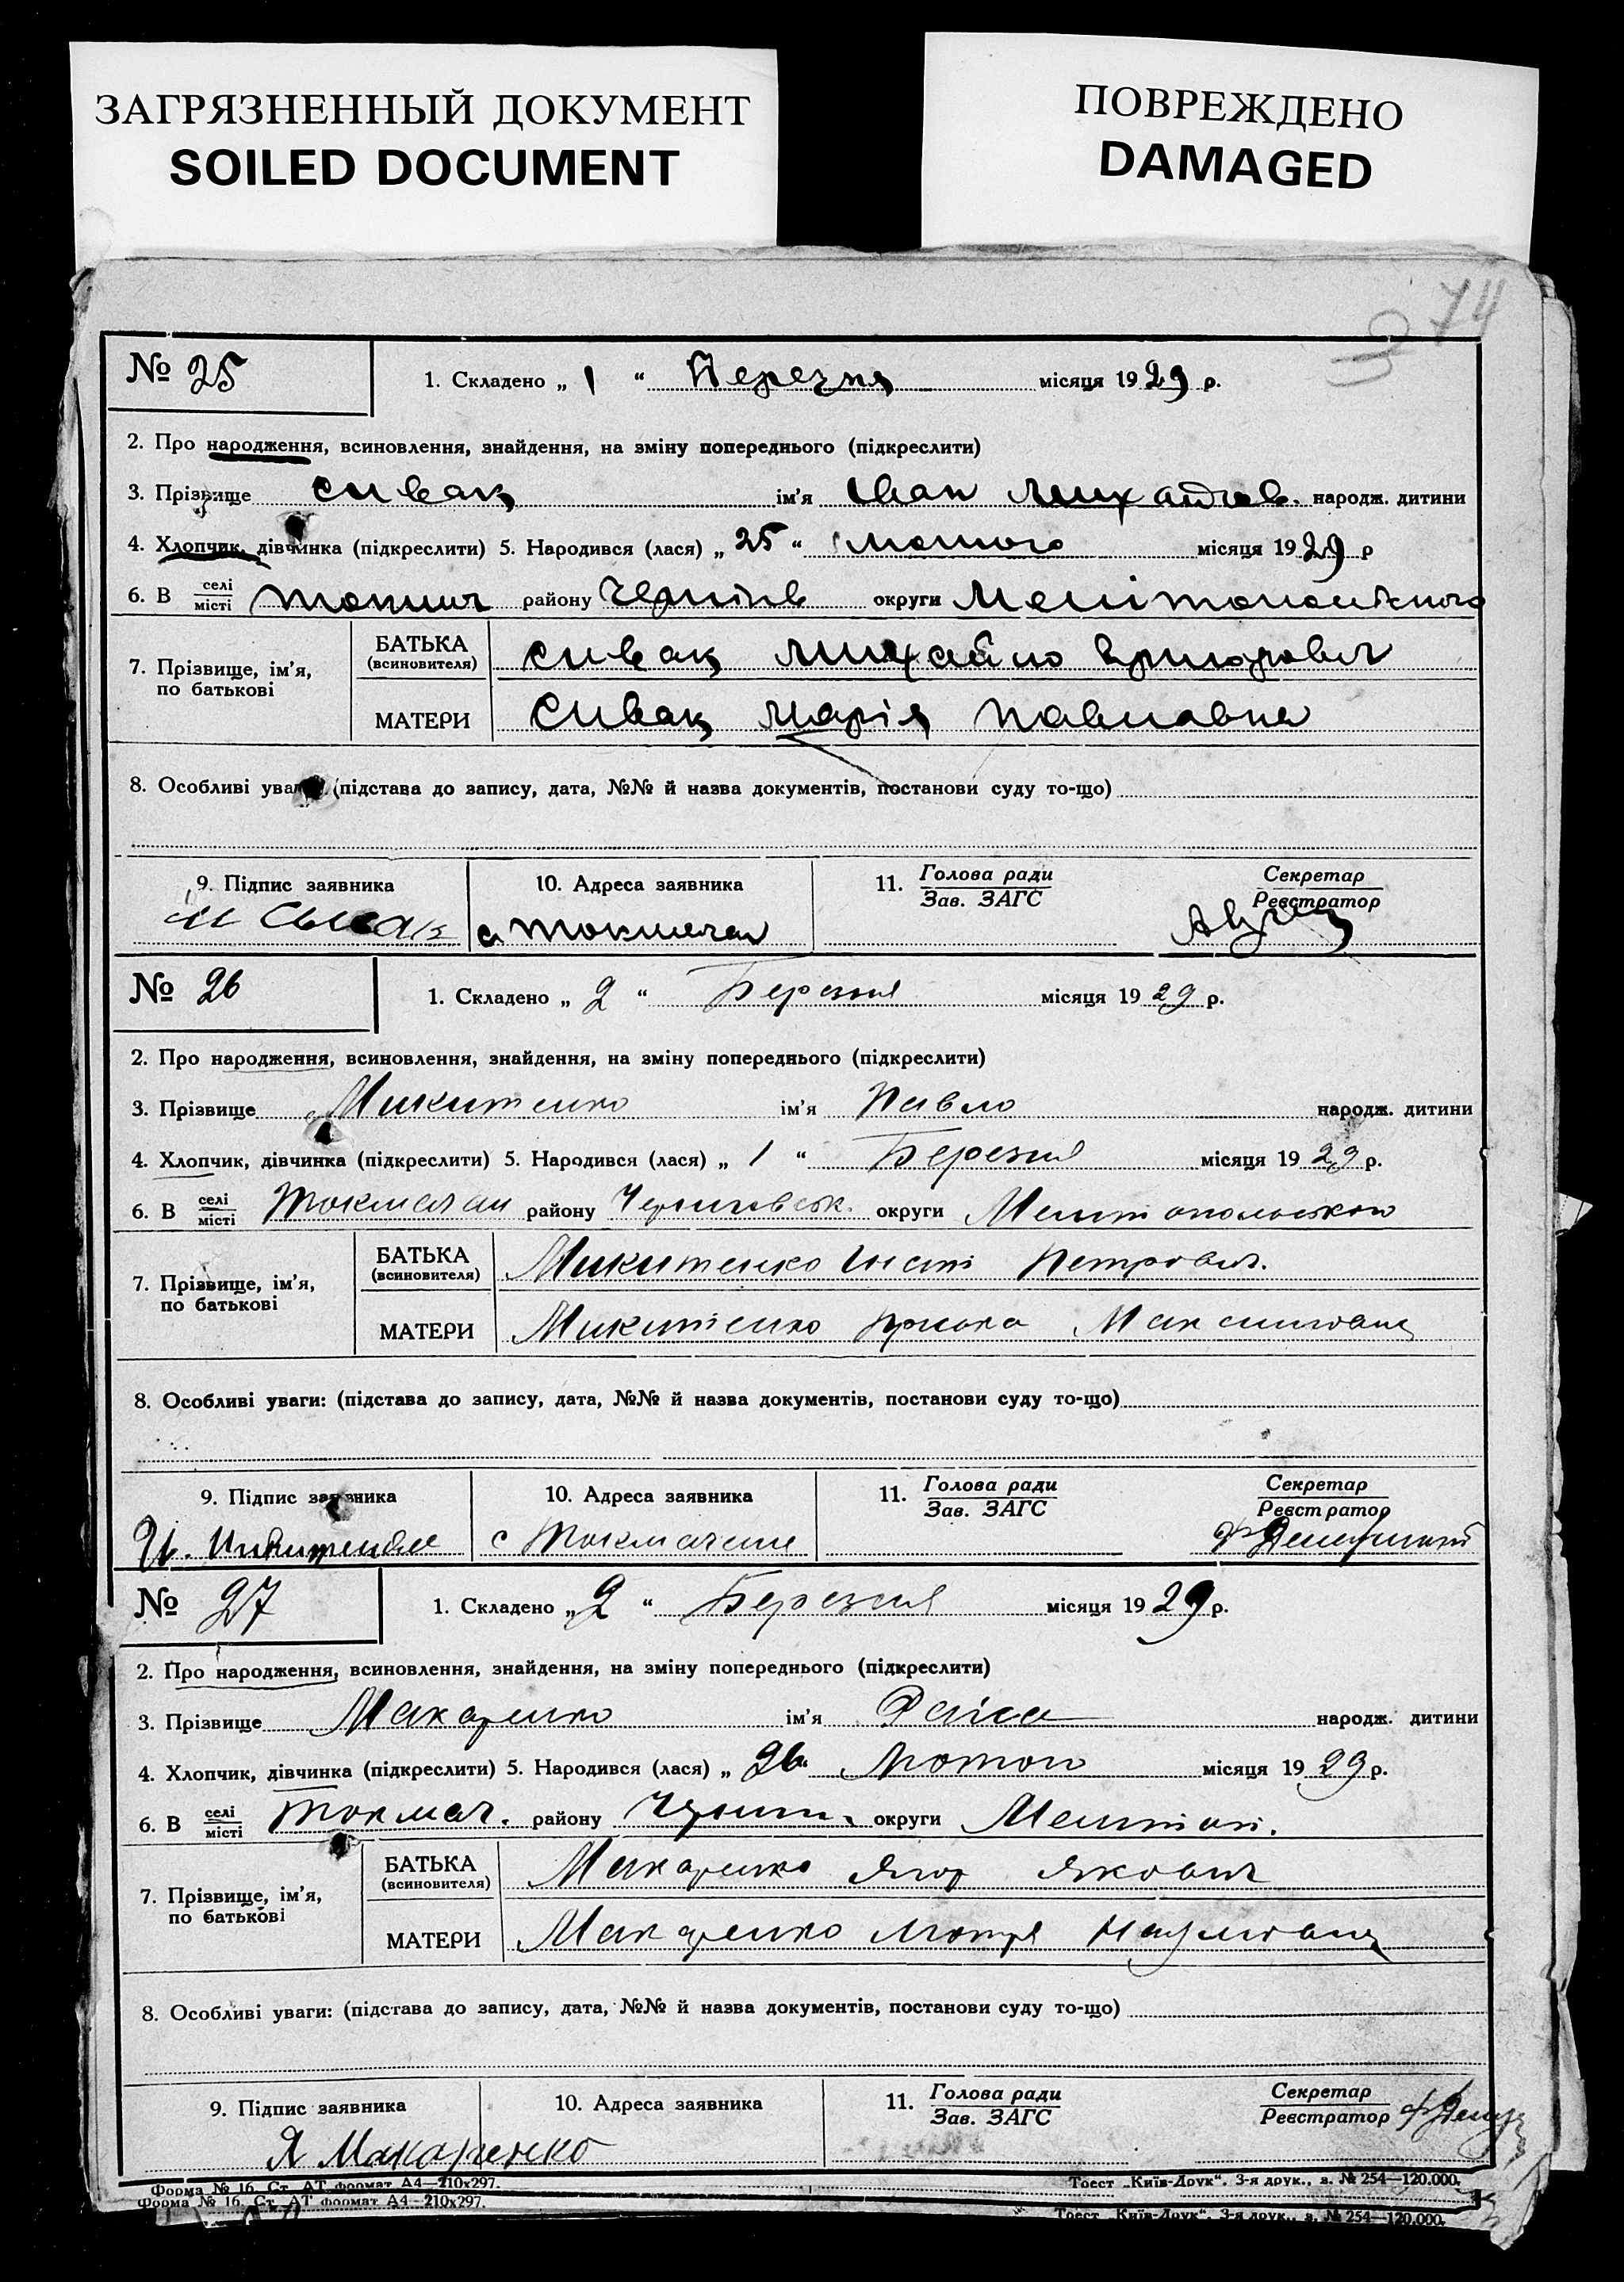 ЗАГРЯЗНЕННЫЙ ДОКУМЕНТ
SOILED DOCUMENT
ПОВРЕЖДЕНО
DAMAGED
74
№ 25
1. Складено „ 1 “ місяця 1929 р.
2. Про народження, всиновлення, знайдення, на зміну попереднього (підкреслити)
3. Прізвище Сивак ім'я Іван народж. дитини
4. Хлопчик, дівчинка (підкреслити) 5. Народився (лася) „ 25 “ лютого місяця 1929 р
6. В селі/місті району округи
7. Прізвище, ім'я, по батькові
БАТЬКА (всиновителя) Сивак Михайло Григорович
МАТЕРИ Сивак Марія Павлавна
8. Особливі уваги: (підстава до запису, дата, №№ й назва документів, постанови суду то-що)
9. Підпис заявника
10. Адреса заявника
11. Голова ради/Зав. ЗАГС
Секретар/Реєстратор
№ 26
1. Складено „ 2 “ Березня місяця 1929 р.
2. Про народження, всиновлення, знайдення, на зміну попереднього (підкреслити)
3. Прізвище Микитенко ім'я Павло народж. дитини
4. Хлопчик, дівчинка (підкреслити) 5. Народився (лася) „ 1 “ Березня місяця 1929 р.
6. В селі/місті району округи
7. Прізвище, ім'я, по батькові
БАТЬКА (всиновителя) Микитенко Петрович.
МАТЕРИ Микитенко Максимовна
8. Особливі уваги: (підстава до запису, дата, №№ й назва документів, постанови суду то-що)
9. Підпис заявника
10. Адреса заявника
11. Голова ради/Зав. ЗАГС
Секретар/Реєстратор
№ 27
1. Складено „ 2 “ Березня місяця 1929 р.
2. Про народження, всиновлення, знайдення, на зміну попереднього (підкреслити)
3. Прізвище Макаренко ім'я Раїса народж. дитини
4. Хлопчик, дівчинка (підкреслити) 5. Народився (лася) „ 26 “ місяця 1929 р.
6. В селі/місті Токмач. району округи
7. Прізвище, ім'я, по батькові
БАТЬКА (всиновителя) Макаренко Якович
МАТЕРИ Макаренко Мотря Наумовна
8. Особливі уваги: (підстава до запису, дата, №№ й назва документів, постанови суду то-що)
9. Підпис заявника
Я Макаренко
10. Адреса заявника
11. Голова ради/Зав. ЗАГС
Секретар/Реєстратор
Форма № 16. Ст. АТ формат А4—210х297.
Трест „Київ-Друк“. 3-я друк., з. № 254—120.000.
Форма № 16. Ст. АТ формат А4—210х297.
Трест „Київ-Друк“. 3-я друк., з. № 254—120.000.